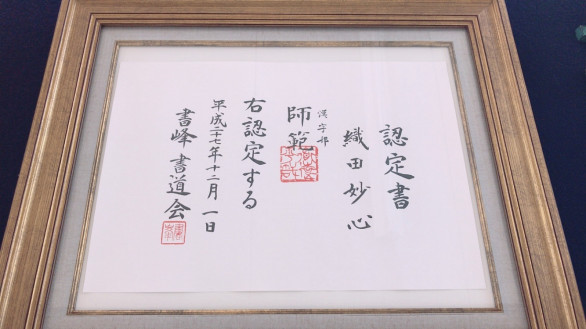 認定書
織田妙心
漢字部
師範
右認定する
平成二十七年十二月一日
書峰書道会